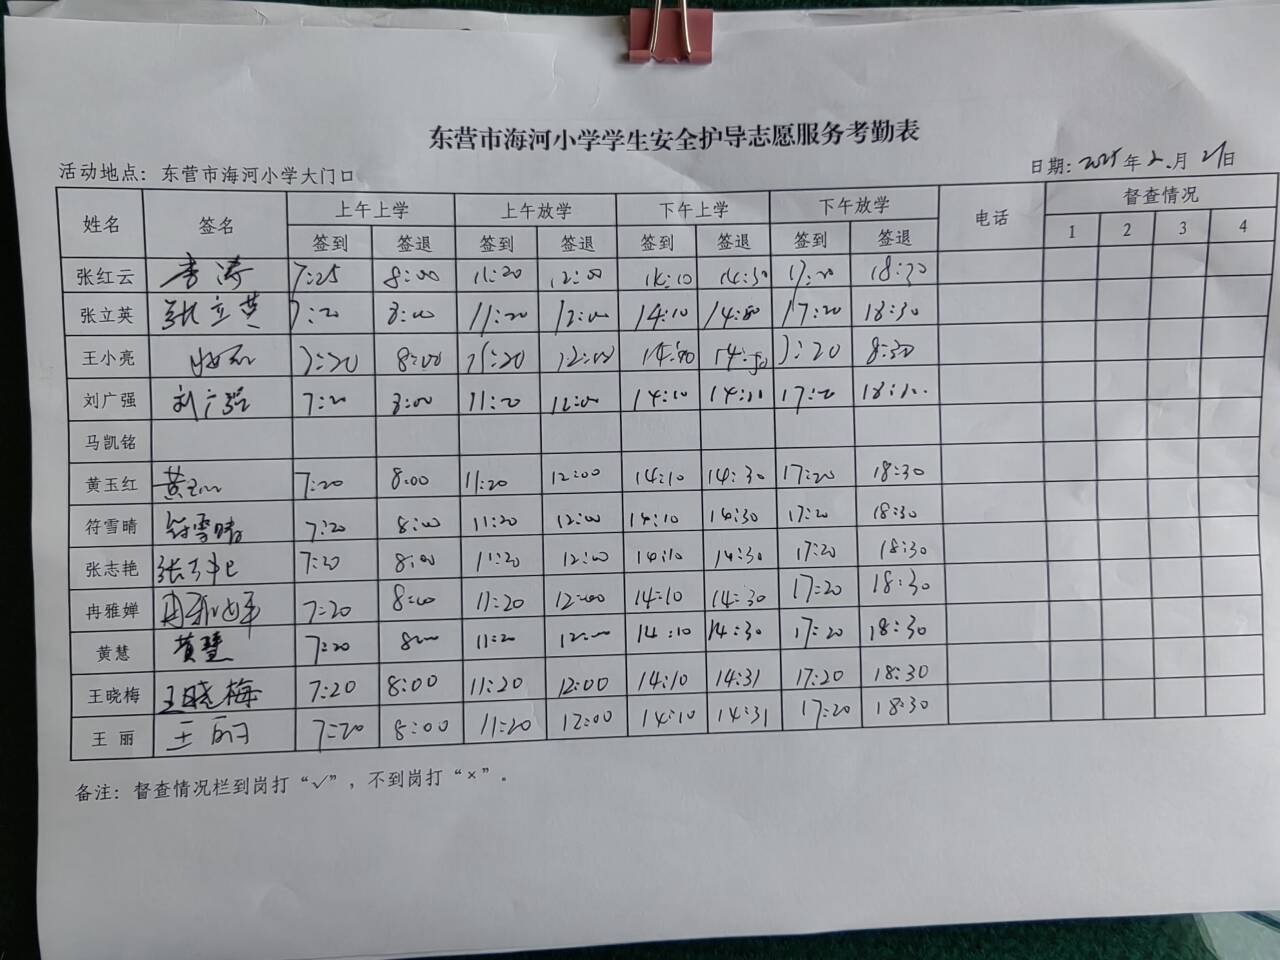 东营市海河小学学生安全护导志愿服务考勤表
活动地点：东营市海河小学大门口 日期：2025年2.月21日
姓名 签名 上午上学 上午放学 下午上学 下午放学 电话 督查情况
签到 签退 签到 签退 签到 签退 签到 签退 1 2 3 4
张红云 李涛 7:25 8:00 11:20 12:00 14:10 14:30 17:20 18:30
张立英 张立英 7:20 8:00 11:20 12:00 14:10 14:30 17:20 18:30
王小亮 7:20 8:00 11:20 12:00 8:30
刘广强 刘广强 7:20 8:00 11:20 12:00 14:10 17:20
马凯铭
黄玉红 黄玉红 7:20 8:00 11:20 12:00 14:10 14:30 17:20 18:30
符雪晴 符雪晴 7:20 8:00 11:20 12:00 14:10 14:30 17:20 18:30
张志艳 张志艳 7:20 8:00 11:20 12:00 14:10 14:30 17:20 18:30
冉雅婵 冉雅婵 7:20 8:00 11:20 12:00 14:10 14:30 17:20 18:30
黄慧 黄慧 7:20 8:00 11:20 12:00 14:10 14:30 17:20 18:30
王晓梅 王晓梅 7:20 8:00 11:20 12:00 14:10 14:31 17:20 18:30
王丽 王丽 7:20 8:00 11:20 12:00 14:10 14:31 17:20 18:30
备注：督查情况栏到岗打“√”，不到岗打“×”。